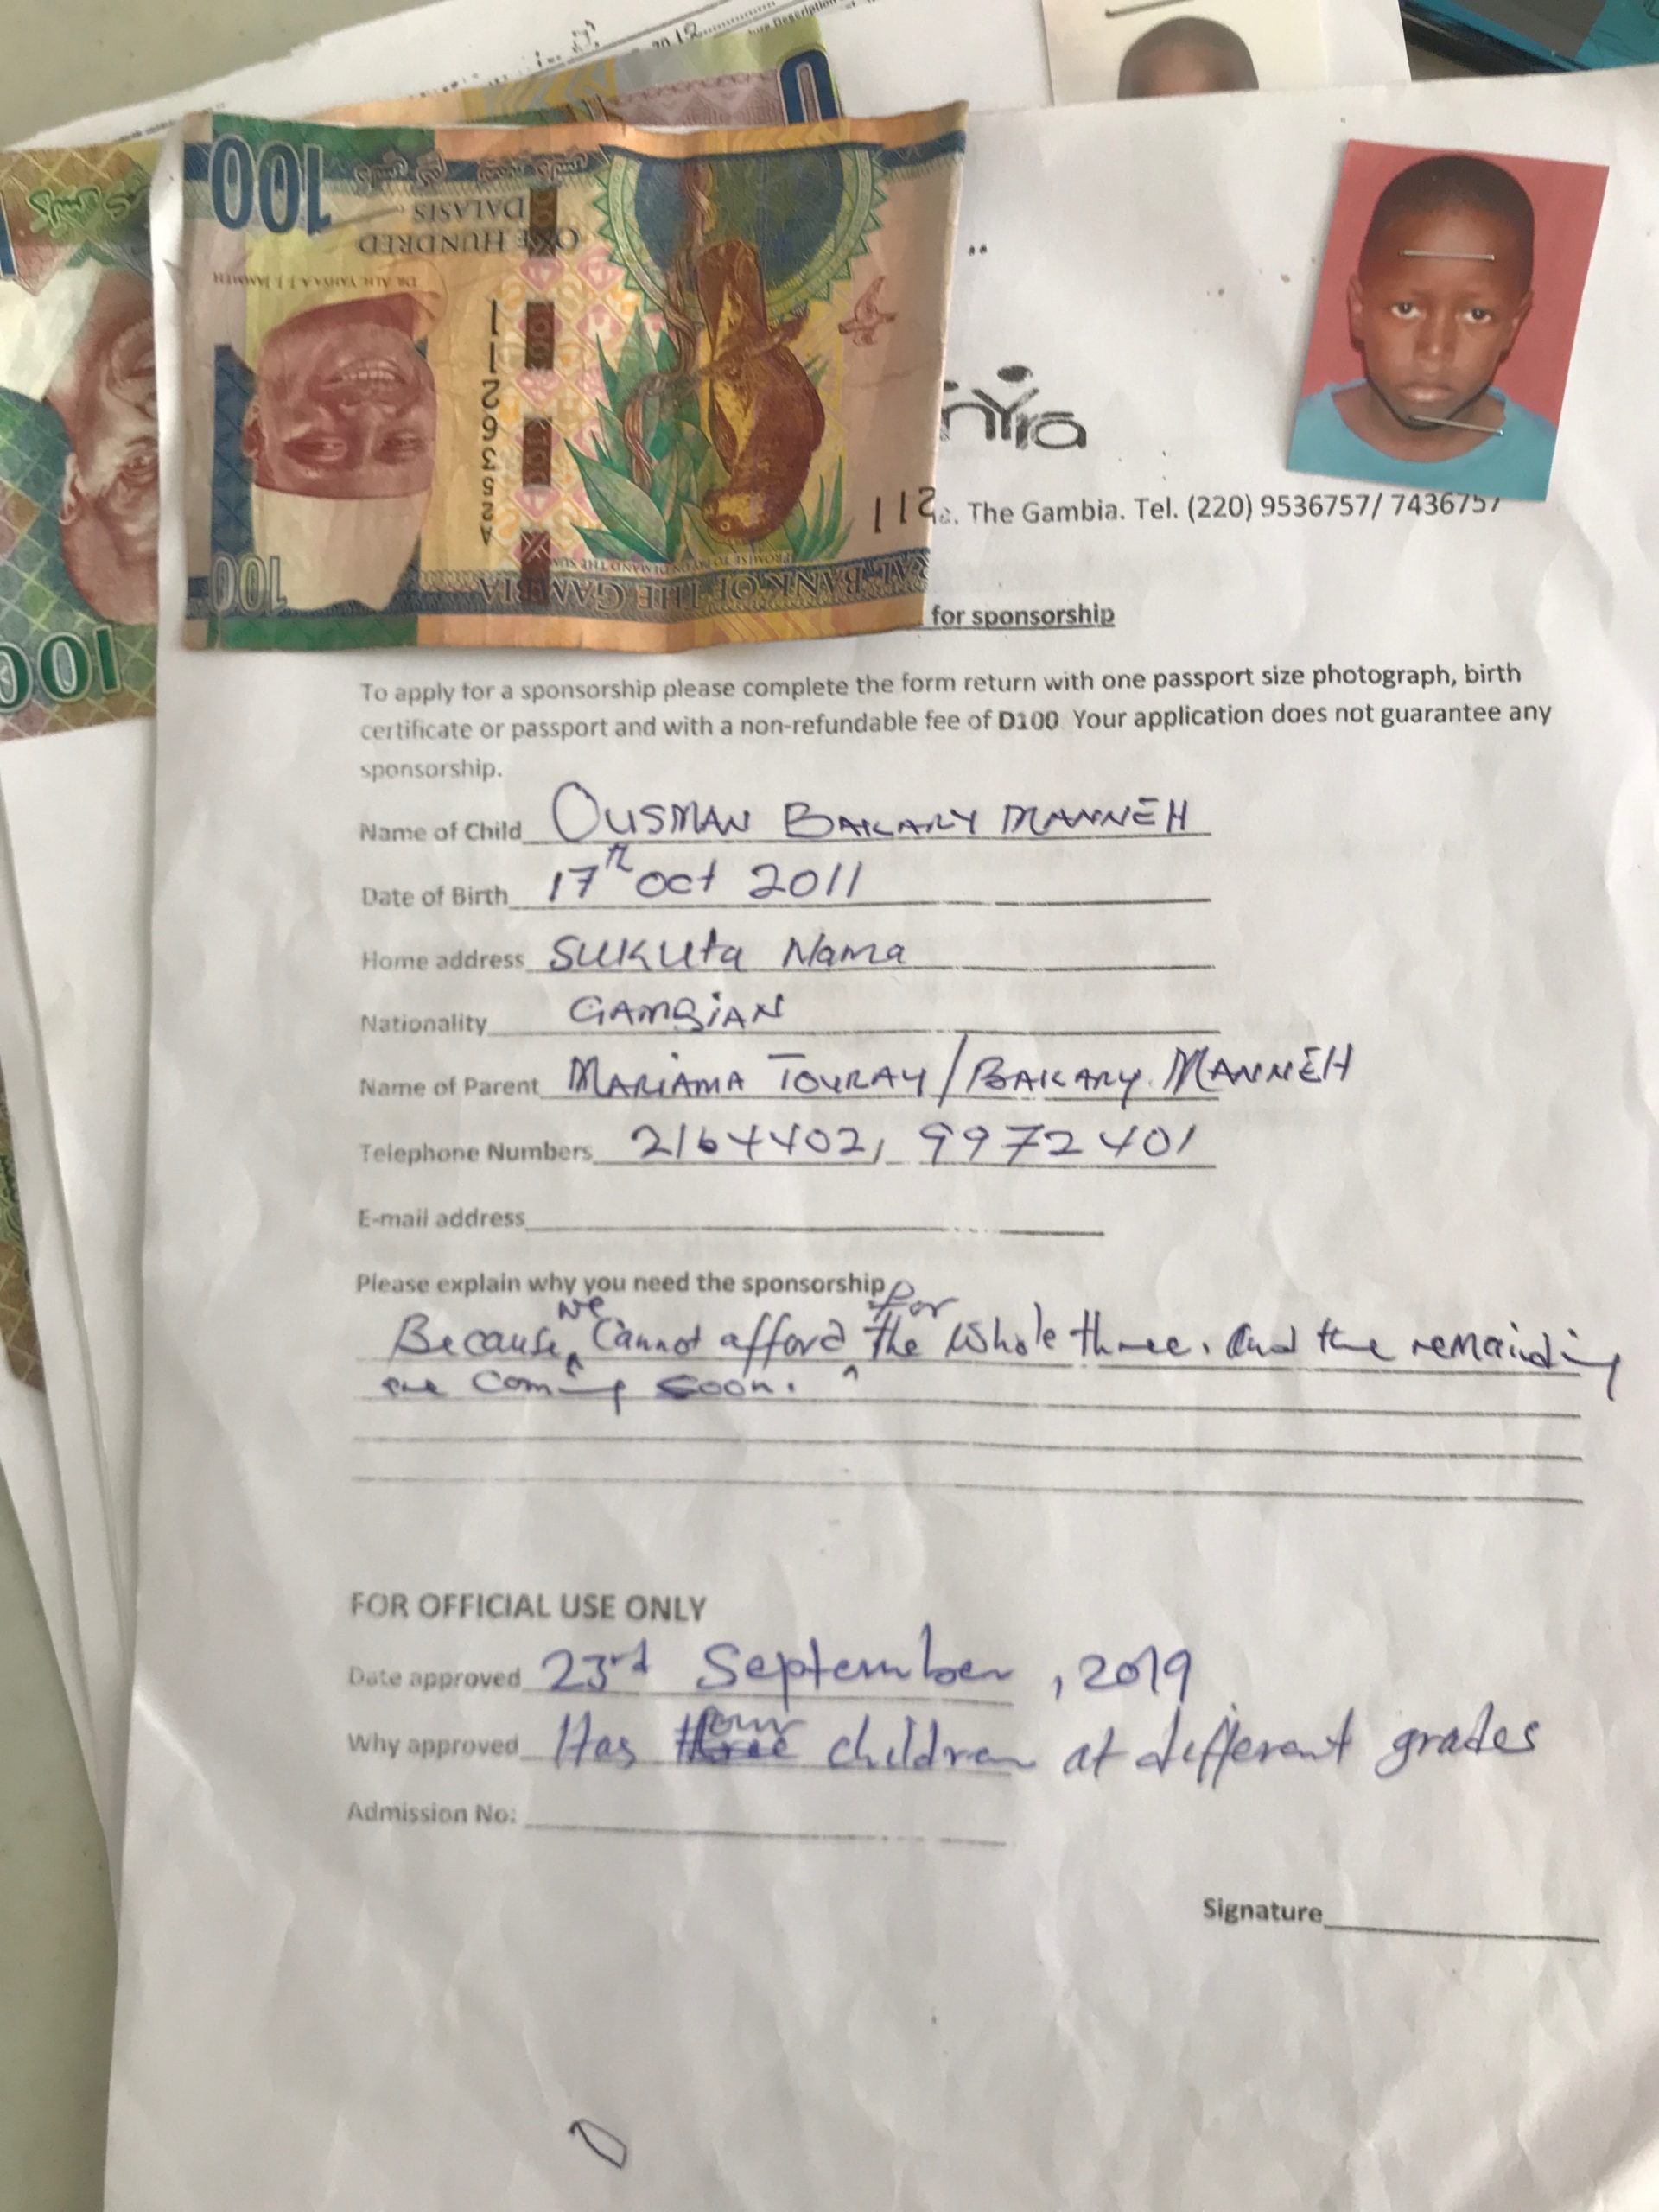 2012
ture Description
100
DALASIS
ONE HUNDRED
DR. ALH. YAHYA A.J.J. JAMMEH
A2536211
211
100
PROMISE TO PAY ON DEMAND THE SUM
BANK OF THE GAMBIA
100
nYra
The Gambia. Tel. (220) 9536757/ 7436757
for sponsorship
To apply for a sponsorship please complete the form return with one passport size photograph, birth
certificate or passport and with a non-refundable fee of D100 Your application does not guarantee any
sponsorship.
Name of Child OUSMAN BAKARY MANNEH
Date of Birth 17th Oct 2011
Home address Sukuta Nema
Nationality GAMBIAN
Name of Parent MARIAMA TOURAY / BAKARY MANNEH
Telephone Numbers 2164402, 9972401
E-mail address
Please explain why you need the sponsorship
Because we cannot afford for the whole three. And the remainding
are coming soon.
FOR OFFICIAL USE ONLY
Date approved 23rd September, 2019
Why approved Has four children at different grades
Admission No:
Signature